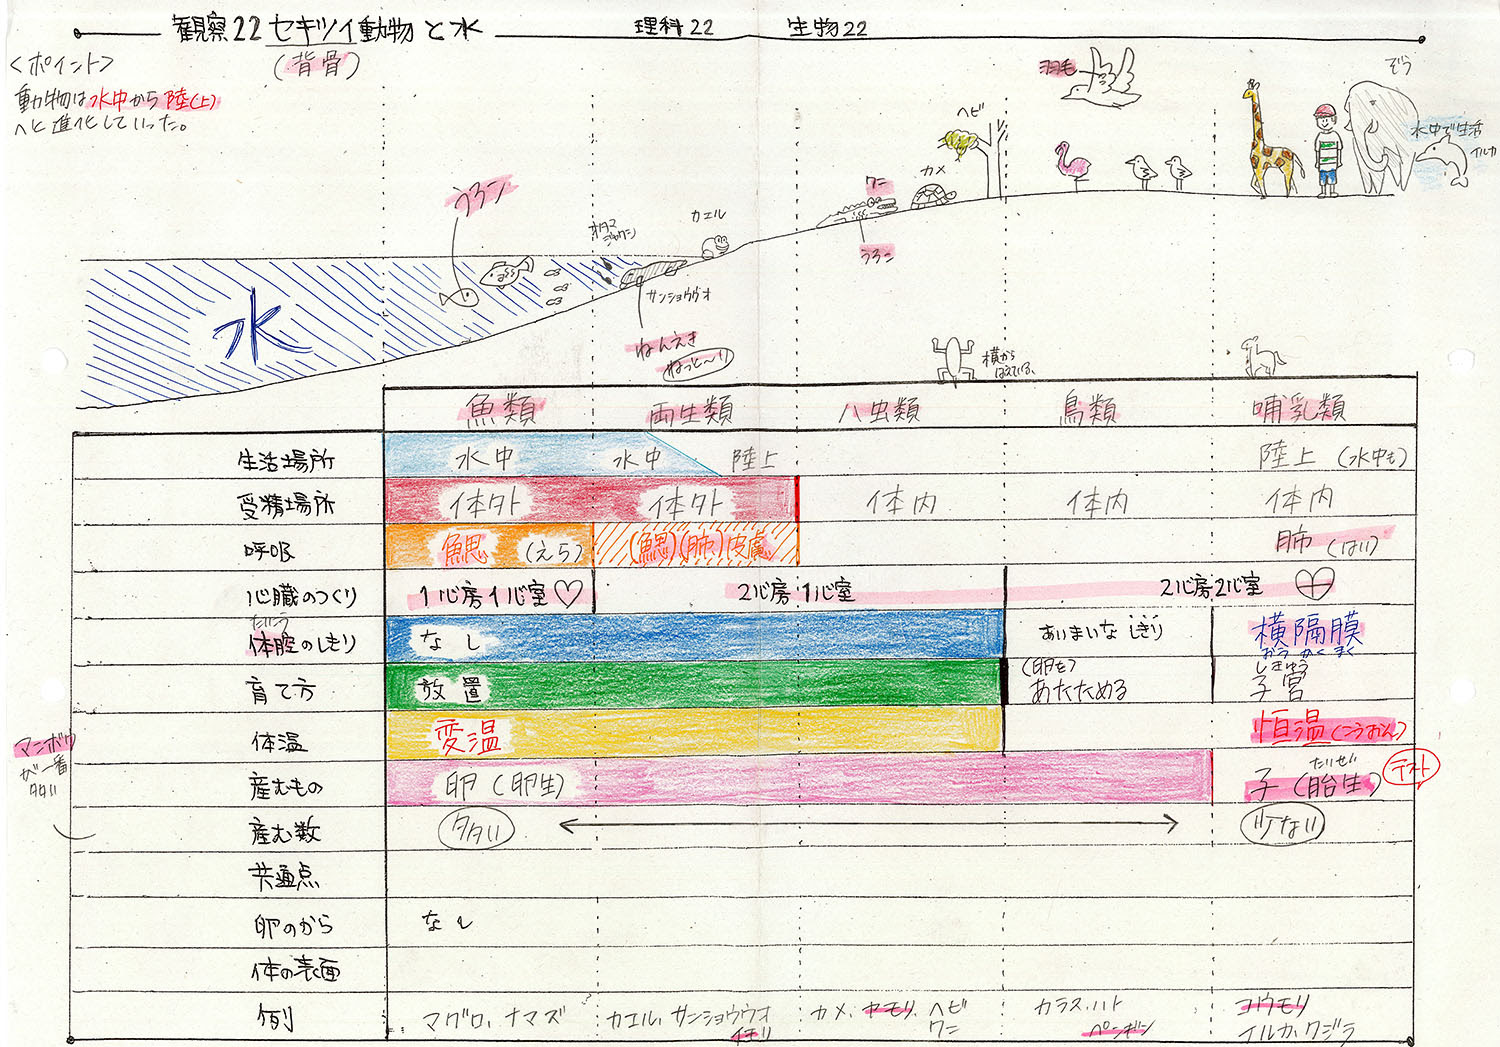 観察22 セキツイ動物と水 理科22 生物22
(背骨)
<ポイント>
動物は水中から陸(上)
へと進化していった。
羽毛
ぞう
水中で生活
イルカ
ヘビ
カメ
ワニ
うろこ
うろこ
カエル
オタマ
ジャクシ
サンショウウオ
水
ねんえき
ねっと〜り
横から
はえている。
魚類 両生類 ハ虫類 鳥類 哺乳類
生活場所 水中 水中 陸上 陸上(水中も)
受精場所 体外 体外 体内 体内 体内
呼吸 鰓(えら) (鰓)(肺)皮膚 肺(はい)
心臓のつくり 1心房1心室 2心房1心室 2心房2心室
たいこう
体腔のしきり なし あいまいなしきり 横隔膜
おうかくまく
育て方 放置 (卵を)あたためる 子宮
しきゅう
体温 変温 恒温(こうおん)
産むもの 卵(卵生) 子(胎生)
たいせい
テスト
マンボウ
が一番
多い
産む数 多い 少ない
共通点
卵のから なし
体の表面
例 マグロ、ナマズ カエル、サンショウウオ カメ、ヤモリ、ヘビ カラス、ハト コウモリ
イモリ ワニ ペンギン イルカ、クジラ